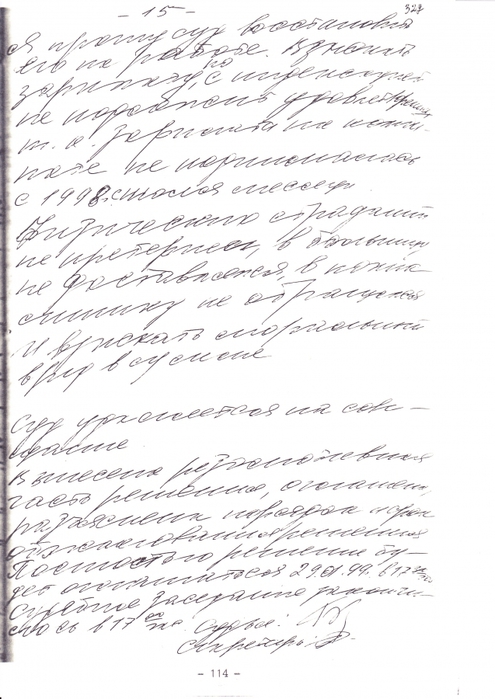 - 15 -
Я прошу суд восстановить
его на работе. Взыскать
зарплату, с индексацией
не подлежит удовлетворению
т. к. зарплата на комби-
нате не повышалась
с 1998
Физических страданий
не претерпел, в больницу
не доставлялся, в поли-
клинику не обращался
и взыскать моральный
вред в сумме
Суд удаляется на сове-
щание
Вынесена резолютивная
часть решения, оглашена,
разъяснен порядок и срок
обжалования решения
Полностью решение бу-
дет оглашаться 29.01.99. в 17
Судебное заседание закончи-
лось в 17 00
Судья:
Секретарь:
- 114 -